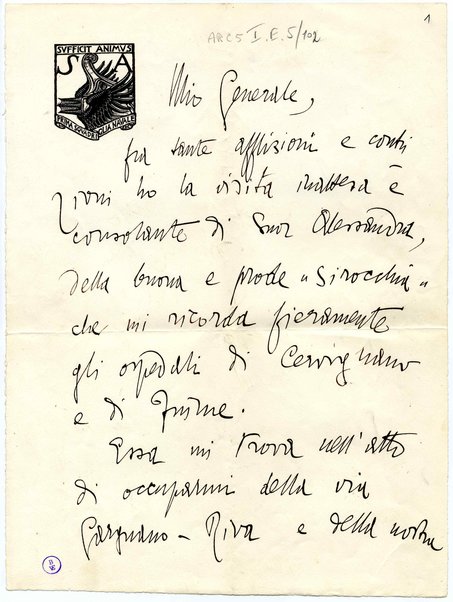 1
ARC5 I.E.5/102
SVFFICIT ANIMVS
S A
PRIMA SQVADRIGLIA NAVALE
Mio Generale,
fra tante afflizioni e contri
zioni ho la visita inattesa e
consolante di Suor Alessandra,
della buona e prode "Sirocchia"
che mi ricorda fieramente
gli ospedali di Cervignano
e di Fiume.
Essa mi trova nell'atto
di occuparmi della via
Gargnano - Riva e della nostra